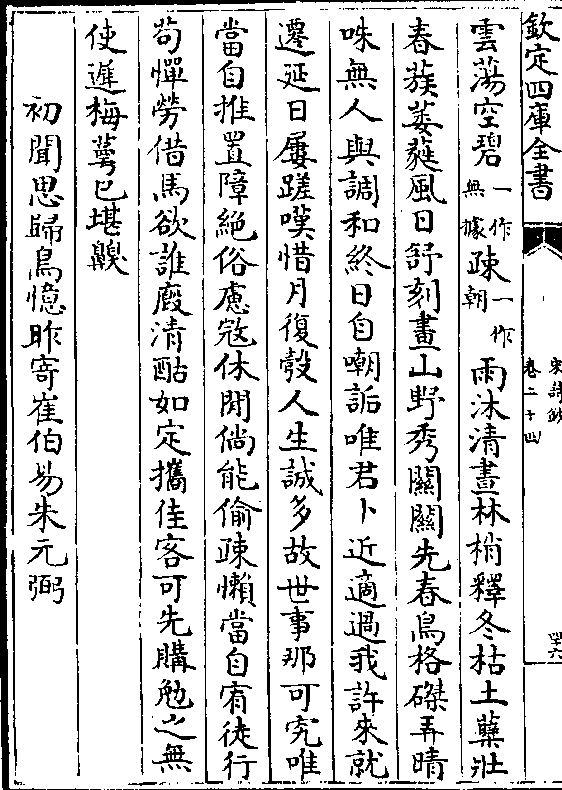 欽定四庫全書
宋詩鈔
卷二十四
四十六
雲蕩空碧一作無據疎一作朝雨沐清晝林梢釋冬枯土蘖壯
春蔟萎蕤風日舒刻畫山野秀關關先春鳥格磔弄晴
咮無人與調和終日自嘲詬唯君卜近適過我許來就
遷延日屢蹉嘆惜月復彀人生誠多故世事那可究唯
當自推置障絶俗慮寇休閒倘能偷疎懶當自宥徒行
苟憚勞借馬欲誰廄清酤如定攜佳客可先購勉之無
使遲梅蕚已堪齅
初聞思歸鳥憶昨寄崔伯易朱元弼